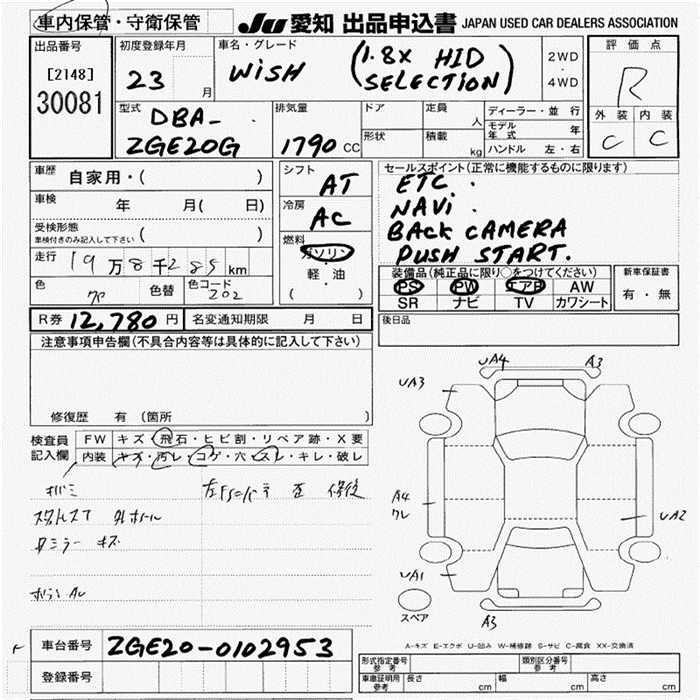 車内保管・守衛保管
JU 愛知 出品申込書 JAPAN USED CAR DEALERS ASSOCIATION
出品番号
[2148]
30081
初度登録年月
23 月
車名・グレード
WiSH (1.8X HID SELECTION)
2WD
・
4WD
評価点
R
外装 内装
C C
型式
DBA-
ZGE20G
排気量
1790 CC
ドア
形状
定員 人
積載 kg
ディーラー・並行
モデル年式 年
ハンドル 左・右
車歴
自家用・( )
車検 年 月( 日)
受検形態
車検付きのみ記入して下さい ( )
走行 19万8千285km
色 色替 色コード
202
シフト
AT
冷房
AC
燃料
ガソリン
軽・油
( )
セールスポイント(正常に機能するものに限ります)
ETC.
NAVi.
BACK CAMERA
PUSH START.
装備品(純正品に限り○をつけてください)
PS PW エアB AW
SR ナビ TV カワシート
新車保証書
有・無
R券 12,780 円 名変通知期限 月 日
後日品
注意事項申告欄(不具合内容等は具体的に記入して下さい)
修復歴 有 (箇所
検査員
記入欄
FW キズ・飛石・ヒビ割・リペア跡・X要
内装 キズ・汚レ・コゲ・穴・スレ・キレ・破レ
キズ
UA4
A3
UA3
A4
ワレ
UA2
UA1
スペア
A3
A-キズ E-エクボ U-凹み W-補修跡 S-サビ C-腐食 XX-交換済
車台番号 ZGE20-0102953
登録番号
形式指定番号
参考
類別区分番号
参考
車庫証明用
参考
長さ cm 幅 cm 高さ cm